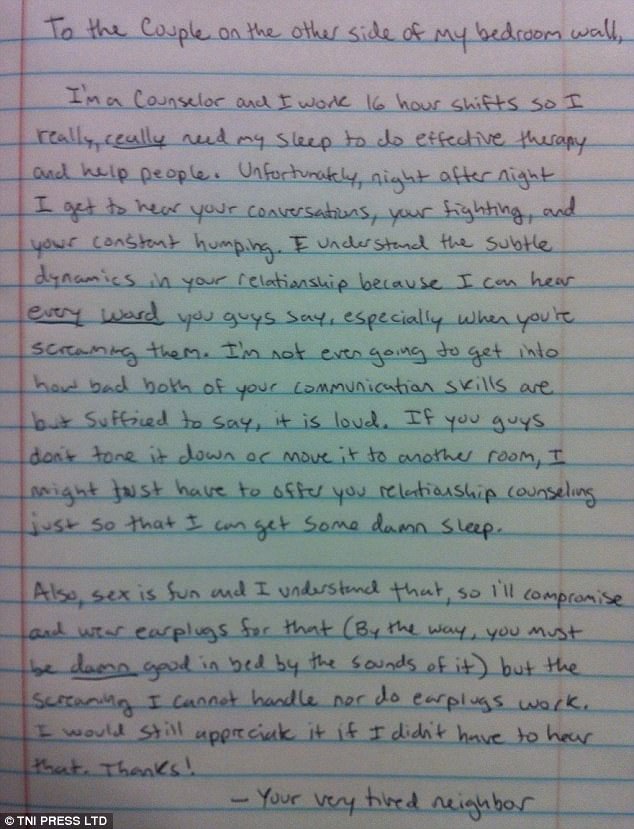 To the Couple on the other side of my bedroom wall,
I'm a Counselor and I work 16 hour shifts so I
really, really need my sleep to do effective therapy
and help people. Unfortunately, night after night
I get to hear your conversations, your fighting, and
your constant humping. I understand the subtle
dynamics in your relationship because I can hear
every word you guys say, especially when you're
screaming them. I'm not even going to get into
how bad both of your communication skills are
but sufficed to say, it is loud. If you guys
don't tone it down or move it to another room, I
might just have to offer you relationship counseling
just so that I can get some damn sleep.
Also, sex is fun and I understand that, so I'll compromise
and wear earplugs for that (By the way, you must
be damn good in bed by the sounds of it) but the
screaming I cannot handle nor do earplugs work.
I would still appreciate it if I didn't have to hear
that. Thanks!
– Your very tired neighbor
© TNI PRESS LTD